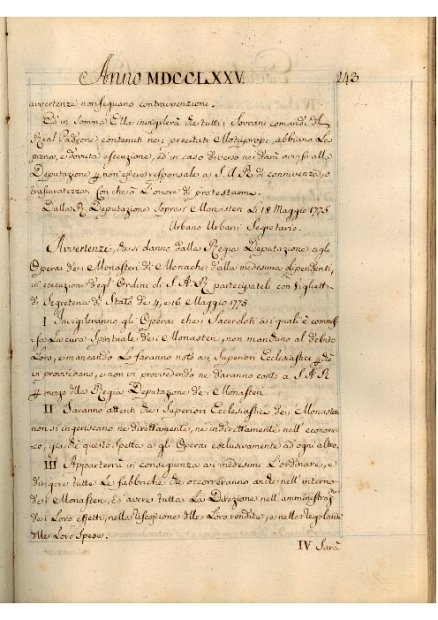 Anno MDCCLXXV. 243
avvertenze non seguano contravvenzioni.
Ed in somma Ella invigilerà che tutti i Sovrani comandi del
Real Padrone contenuti nei precitati Motupropi, abbiano la
piena, e dovuta esecuzione, ed in caso diverso ne darà avviso alla
Deputazione p non essere responsale a S. A. R. di connivenza, o
trascuratezza. Con che à l'onore di protestarmi.
Dalla R. Deputazione sopra i Monasteri Li 18 Maggio 1775
Urbano Urbani Segretario.
Avvertenze, che si danno dalla Regia Deputazione agli
Operai dei Monasteri di Monache dalla medesima dipendenti,
in esecuzione degl'Ordini di S. A. R. partecipateli con Biglietti
di Segreteria di Stato de 4, e 16 Maggio 1775
I Invigileranno gl'Operai che i Sacerdoti ai quali è commes-
sa la cura Spirituale dei Monasteri, non manchino al debito
Loro, e mancando lo faranno noto ai Superiori Ecclesiastici p che
vi provvedano, e non vi provvedendo ne daranno conto a S. A. R.
p mezzo della Regia Deputazione dei Monasteri
II Saranno attenti che i Superiori Ecclesiastici dei Monasteri
non si ingeriscano ne direttamente, ne indirettamente nell'econo-
mico, giacchè questo spetta a gl'Operai esclusivamente ad ogni altro.
III Apparterrà in conseguenza ai medesimi l'ordinare, e
dirigere tutte le fabbriche che occorreranno anche nell'interno
dei Monasteri, ed avere tutta la Direzione nell'amministraz.ne
dei Loro effetti, nella riscossione delle Loro rendite, e nelle regolari
delle Loro spese.
IV Sarà